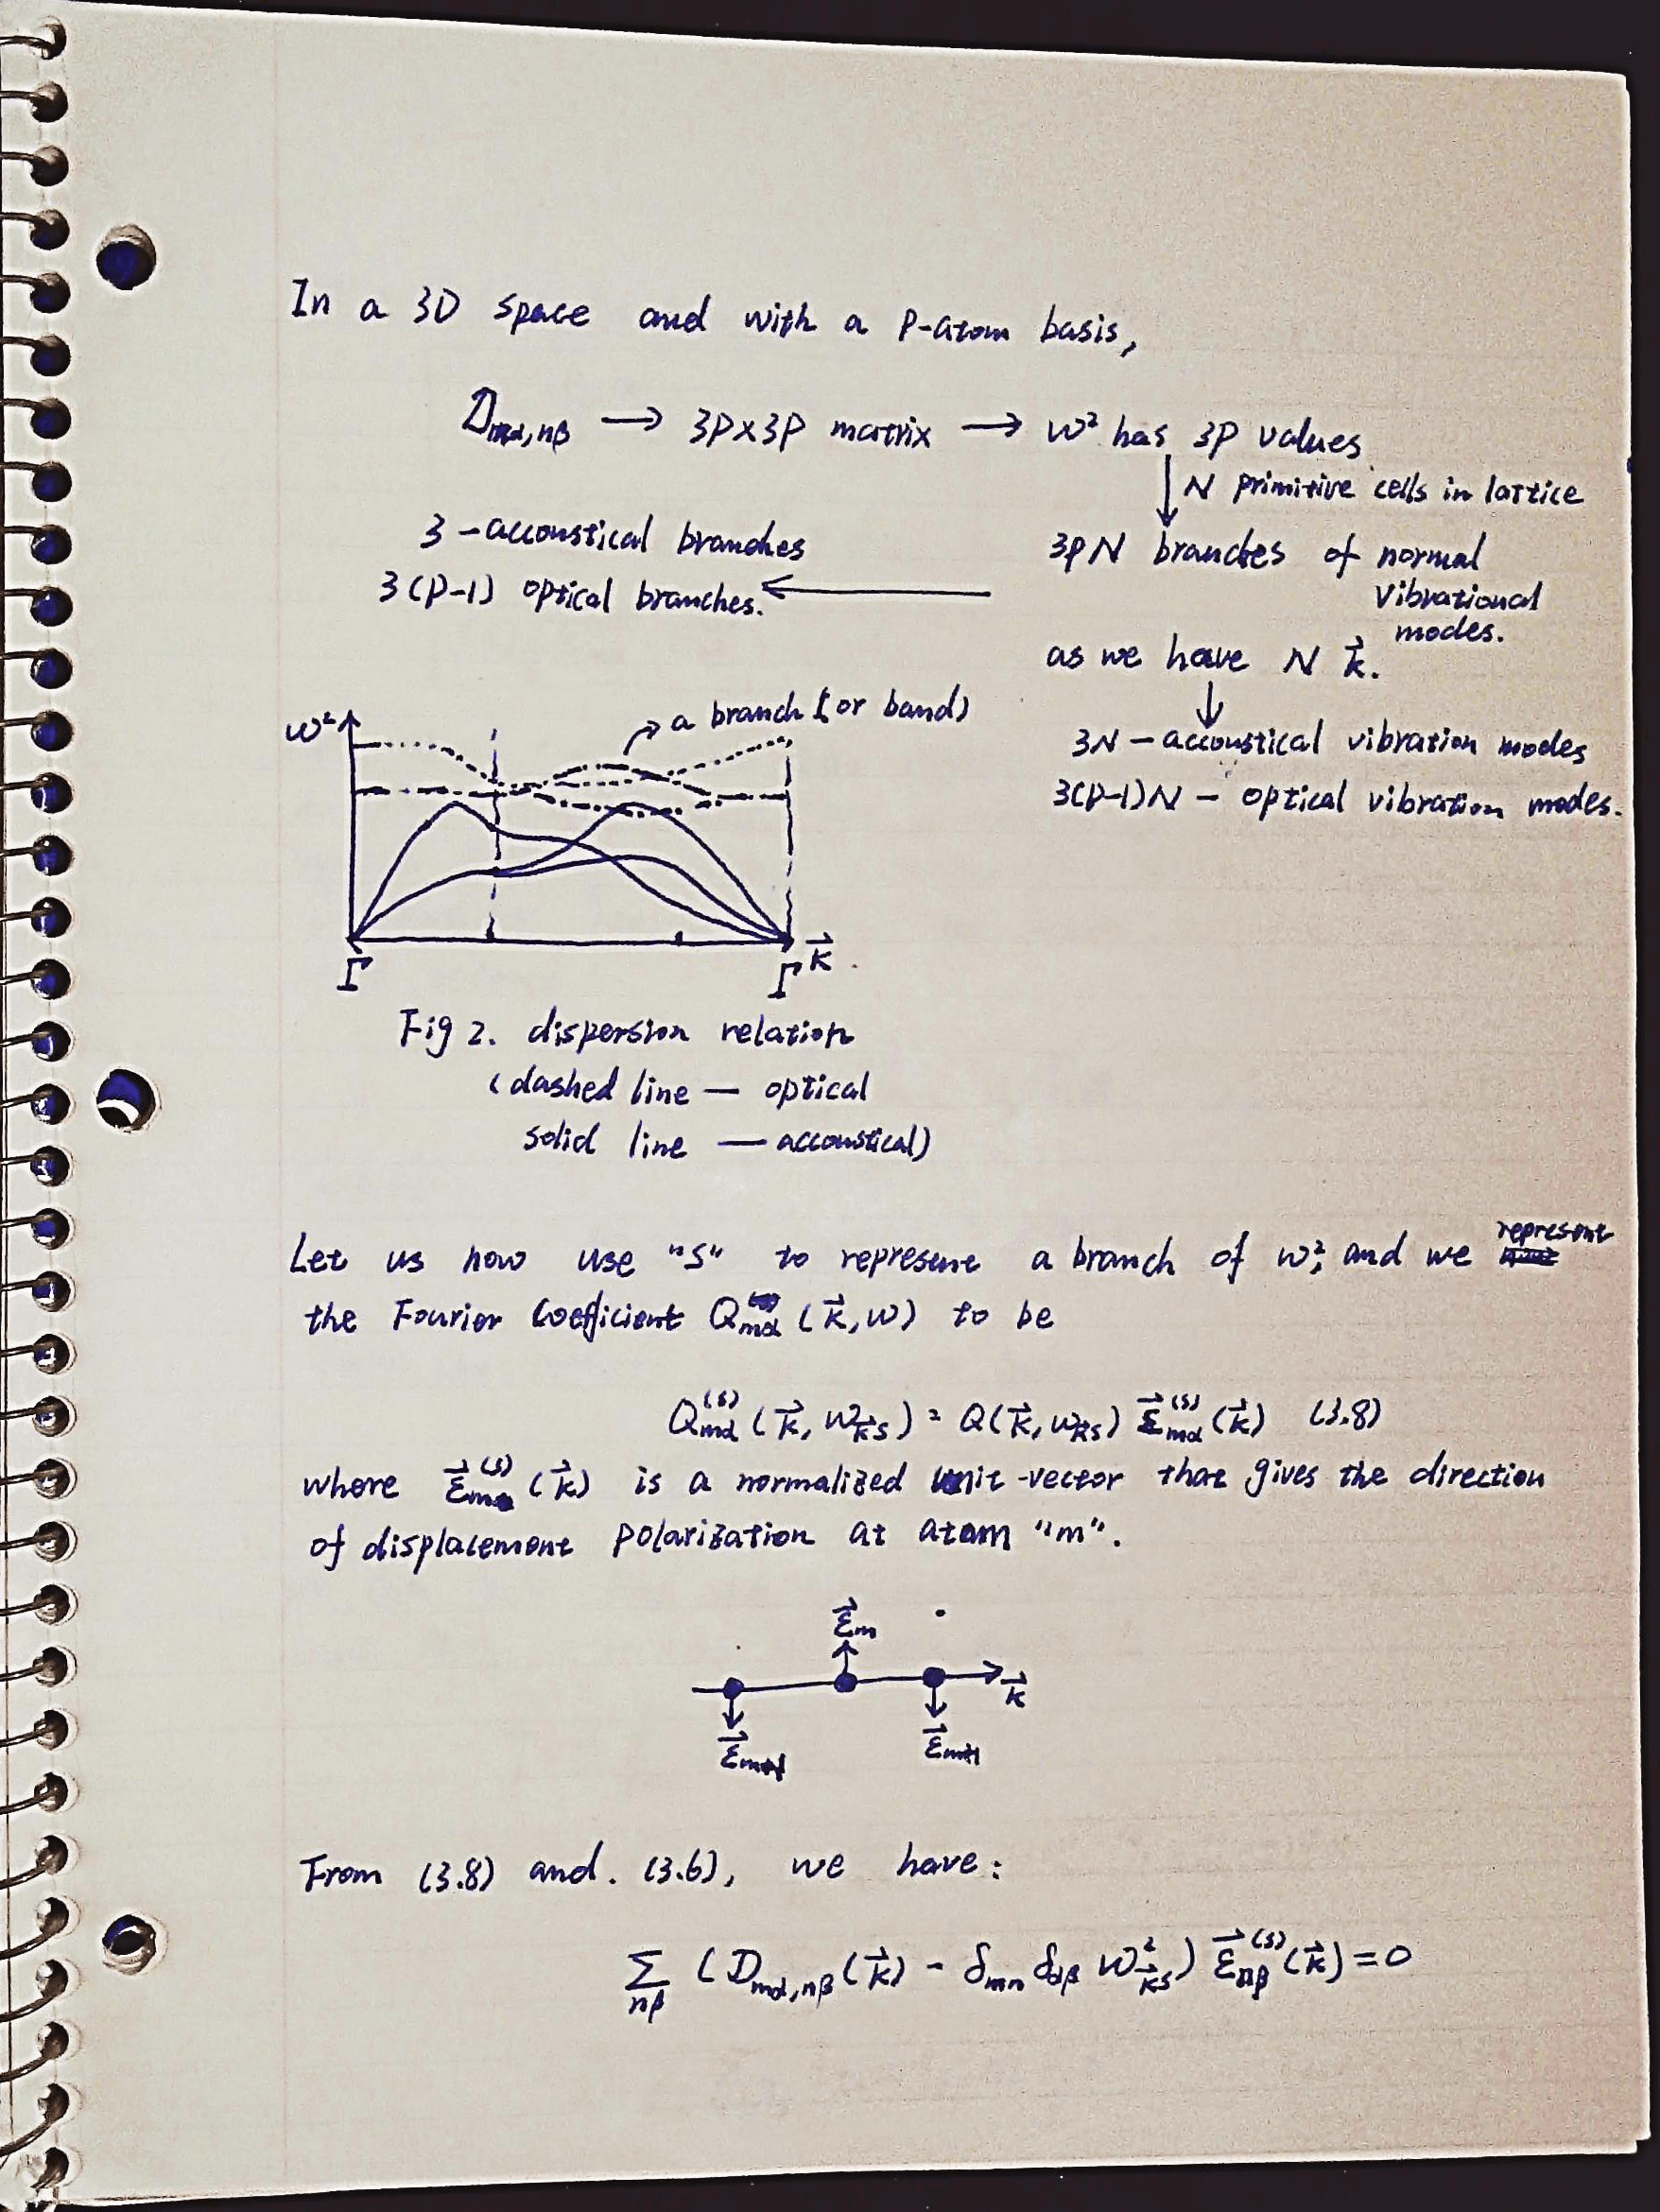 In a 3D space and with a P-atom basis,
D_{mα,nβ} → 3P×3P matrix → ω² has 3P values
↓ N primitive cells in lattice
3-accoustical branches
3(P-1) optical branches. ←
3PN branches of normal
vibrational
modes.
as we have N k⃗.
↓
3N - accoustical vibration modes
3(P-1)N - optical vibration modes.
ω²
a branch (or band)
Γ
Γ k⃗
Fig 2. dispersion relation
(dashed line — optical
solid line — accoustical)
Let us now use "S" to represent a branch of ω², and we represent
the Fourier Coefficient Q_{mα} (k⃗, ω) to be
Q_{mα}^{(s)} (k⃗, ω_{k⃗s}) = Q(k⃗, ω_{k⃗s}) ε⃗_{mα}^{(s)} (k⃗) (3.8)
where ε⃗_{mα}^{(s)} (k⃗) is a normalized unit-vector that gives the direction
of displacement polarization at atom "m".
ε⃗_m
k⃗
ε⃗_{m+1}
From (3.8) and. (3.6), we have:
∑_{nβ} (D_{mα,nβ}(k⃗) - δ_{mn} δ_{αβ} ω²_{k⃗s}) ε⃗_{nβ}^{(s)}(k⃗) = 0